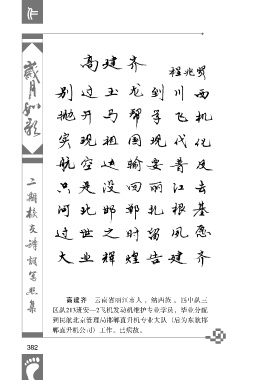 岁月如歌
二期校友诗词写照集
高建齐
别过玉龙到川西
抛开马帮学飞机
实现祖国现代化
航空运输要普及
只是没回丽江去
河北邯郸扎根基
过世之时留夙愿
大业辉煌告建齐
高建齐 云南省丽江市人，纳西族，四中队三
区队213班安—2飞机发动机维护专业学员，毕业分配
到民航北京管理局邯郸直升机专业大队（后为东航邯
郸直升机公司）工作。已病故。
382